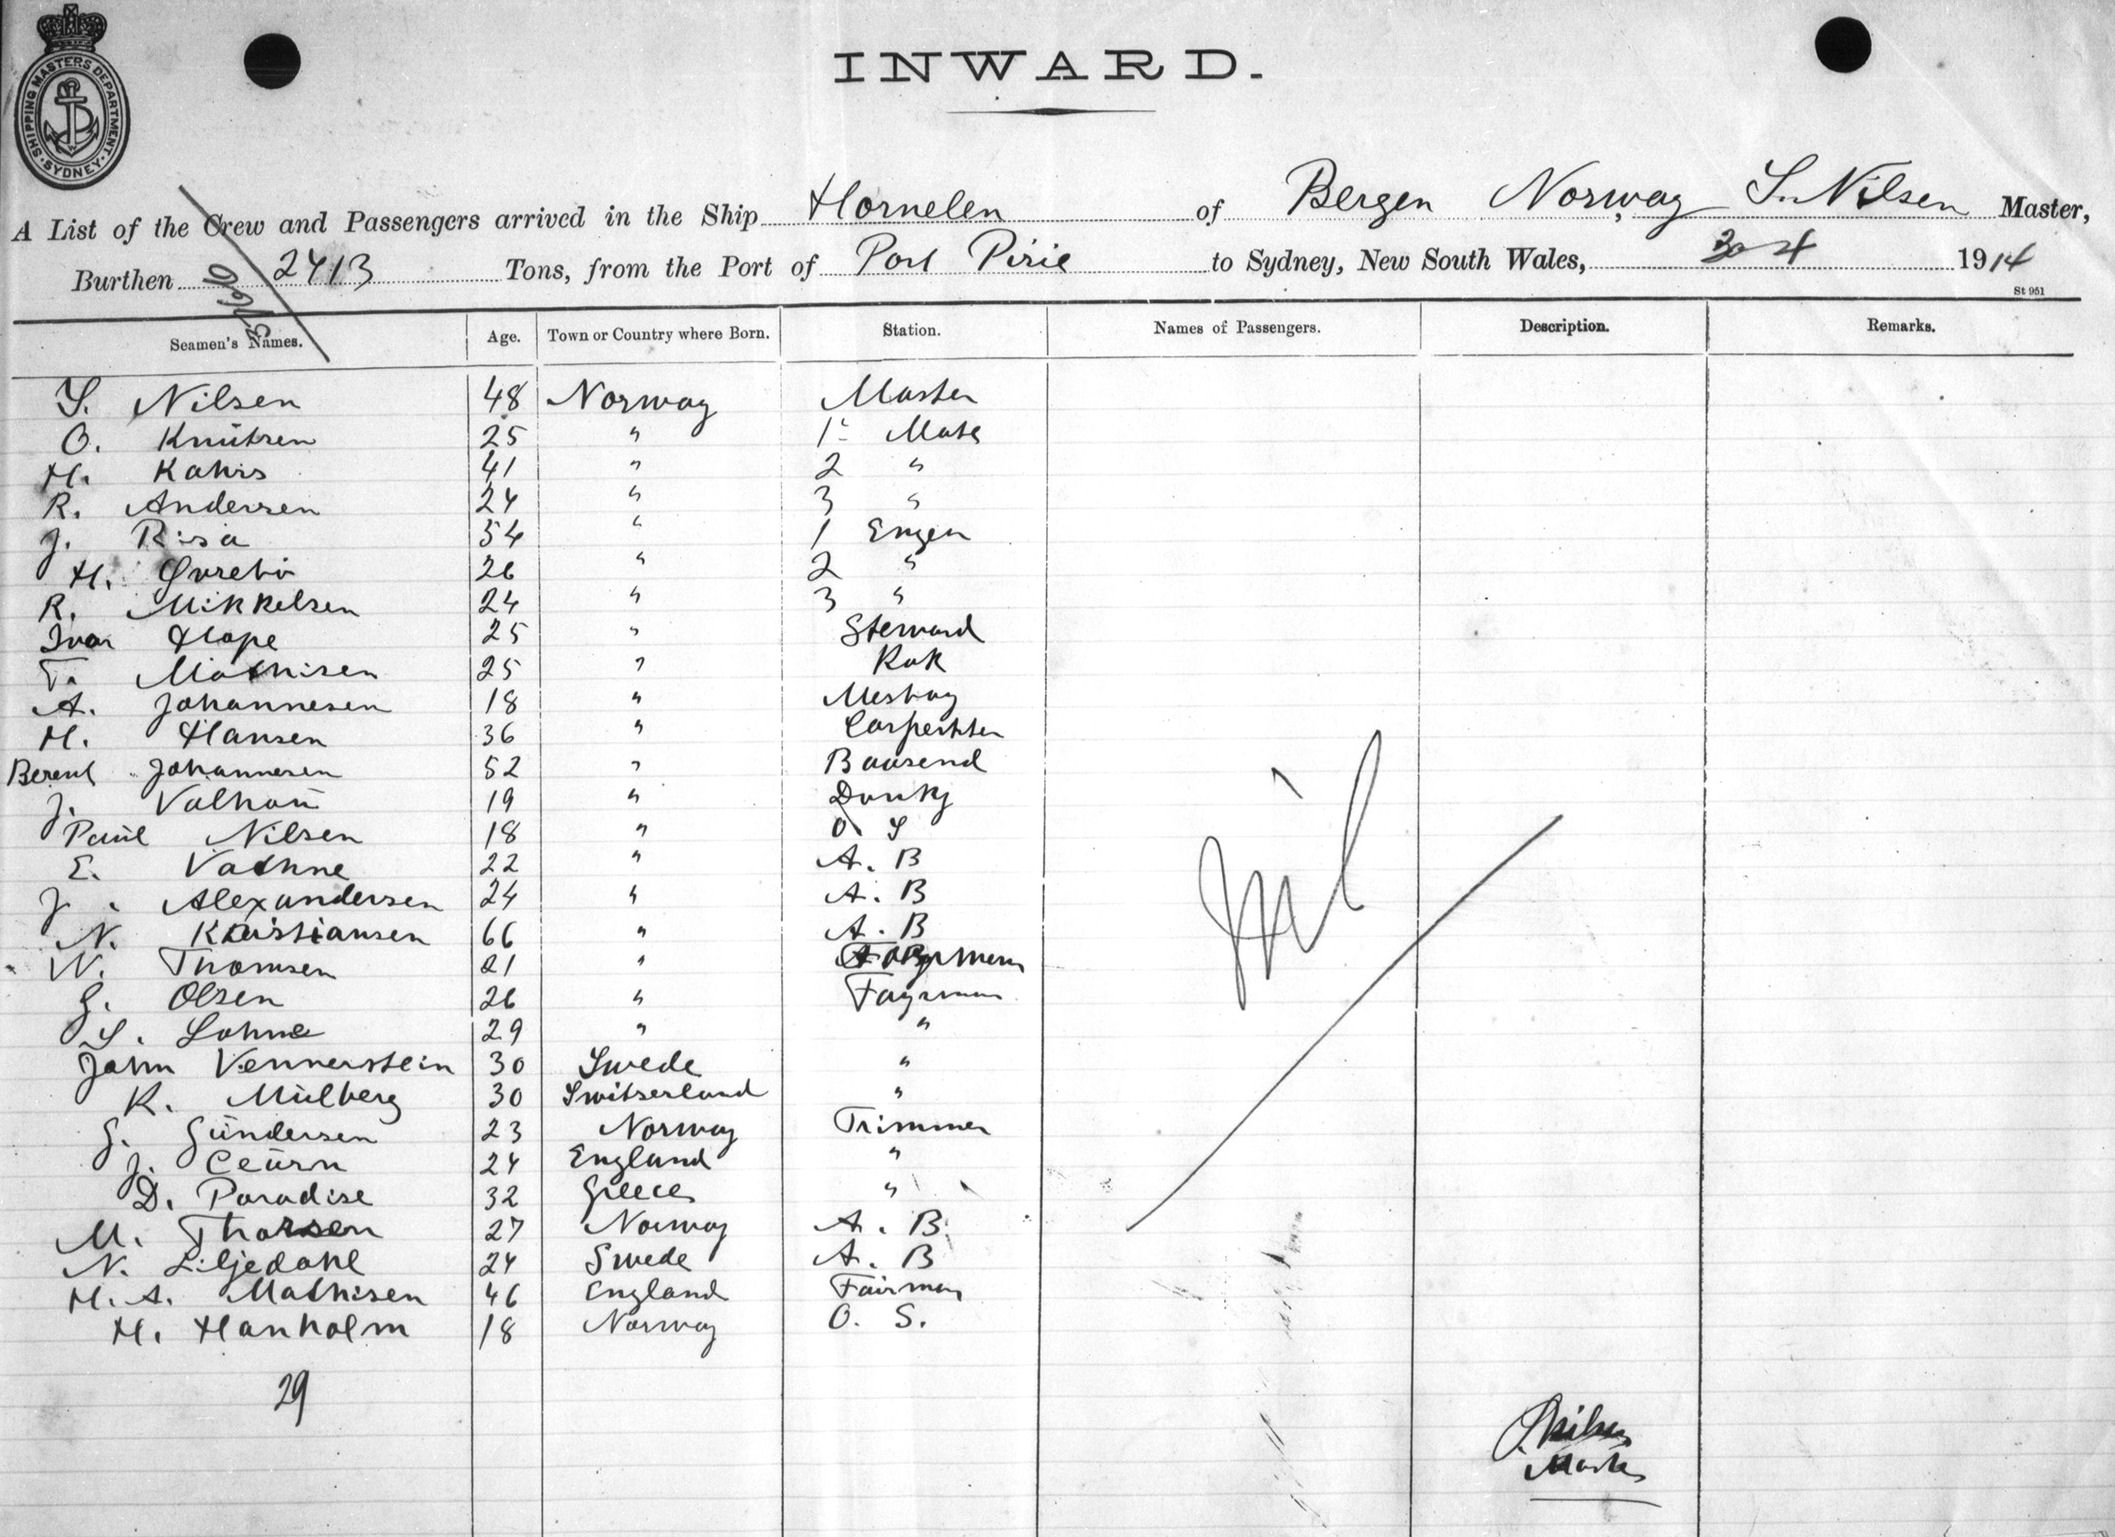 SHIPPING MASTERS DEPARTMENT · SYDNEY ·
INWARD.
A List of the Crew and Passengers arrived in the Ship Hornelen of Bergen Norway, S. Nilsen Master,
Burthen 2413 Tons, from the Port of Port Pirie to Sydney, New South Wales, 30 4 1914
St 951
Seamen's Names. Age. Town or Country where Born. Station. Names of Passengers. Description. Remarks.
S. Nilsen 48 Norway Master
O. Knütsen 25 " 1 Mate
H. Kahrs 41 " 2 "
R. Andersen 24 " 3 "
J. Risa 54 " 1 Engen
H. 26 " 2 "
R. Mikkelsen 24 " 3 "
Ivar Hope 25 " Steward
T. Mathisen 25 " Kok
A. Johannesen 18 " Mesboy
H. Hansen 36 " Carpentter
Berent Johannesen 52 " Baasend
J. Valhaü 19 " Donky
Paül Nilsen 18 " O S
E. Vathne 22 " A. B
J. Alexandersen 24 " A. B
N. Kristiansen 66 " A. B
N. Thomsen 21 "
G. Olsen 26 " Fayrman
S. Lohne 29 " "
John Vennerstein 30 Swede "
K. Mülberg 30 Switserland "
G. Gündersen 23 Norway Trimmer
J. Ceürn 24 England "
D. Paradise 32 Greece "
M. Thorsen 27 Norway A. B.
N. Liljedahl 24 Swede A. B
H. A. Mathisen 46 England Fairman
H. Hanholm 18 Norway O. S.
Nil
29
S. Nilsen
Master